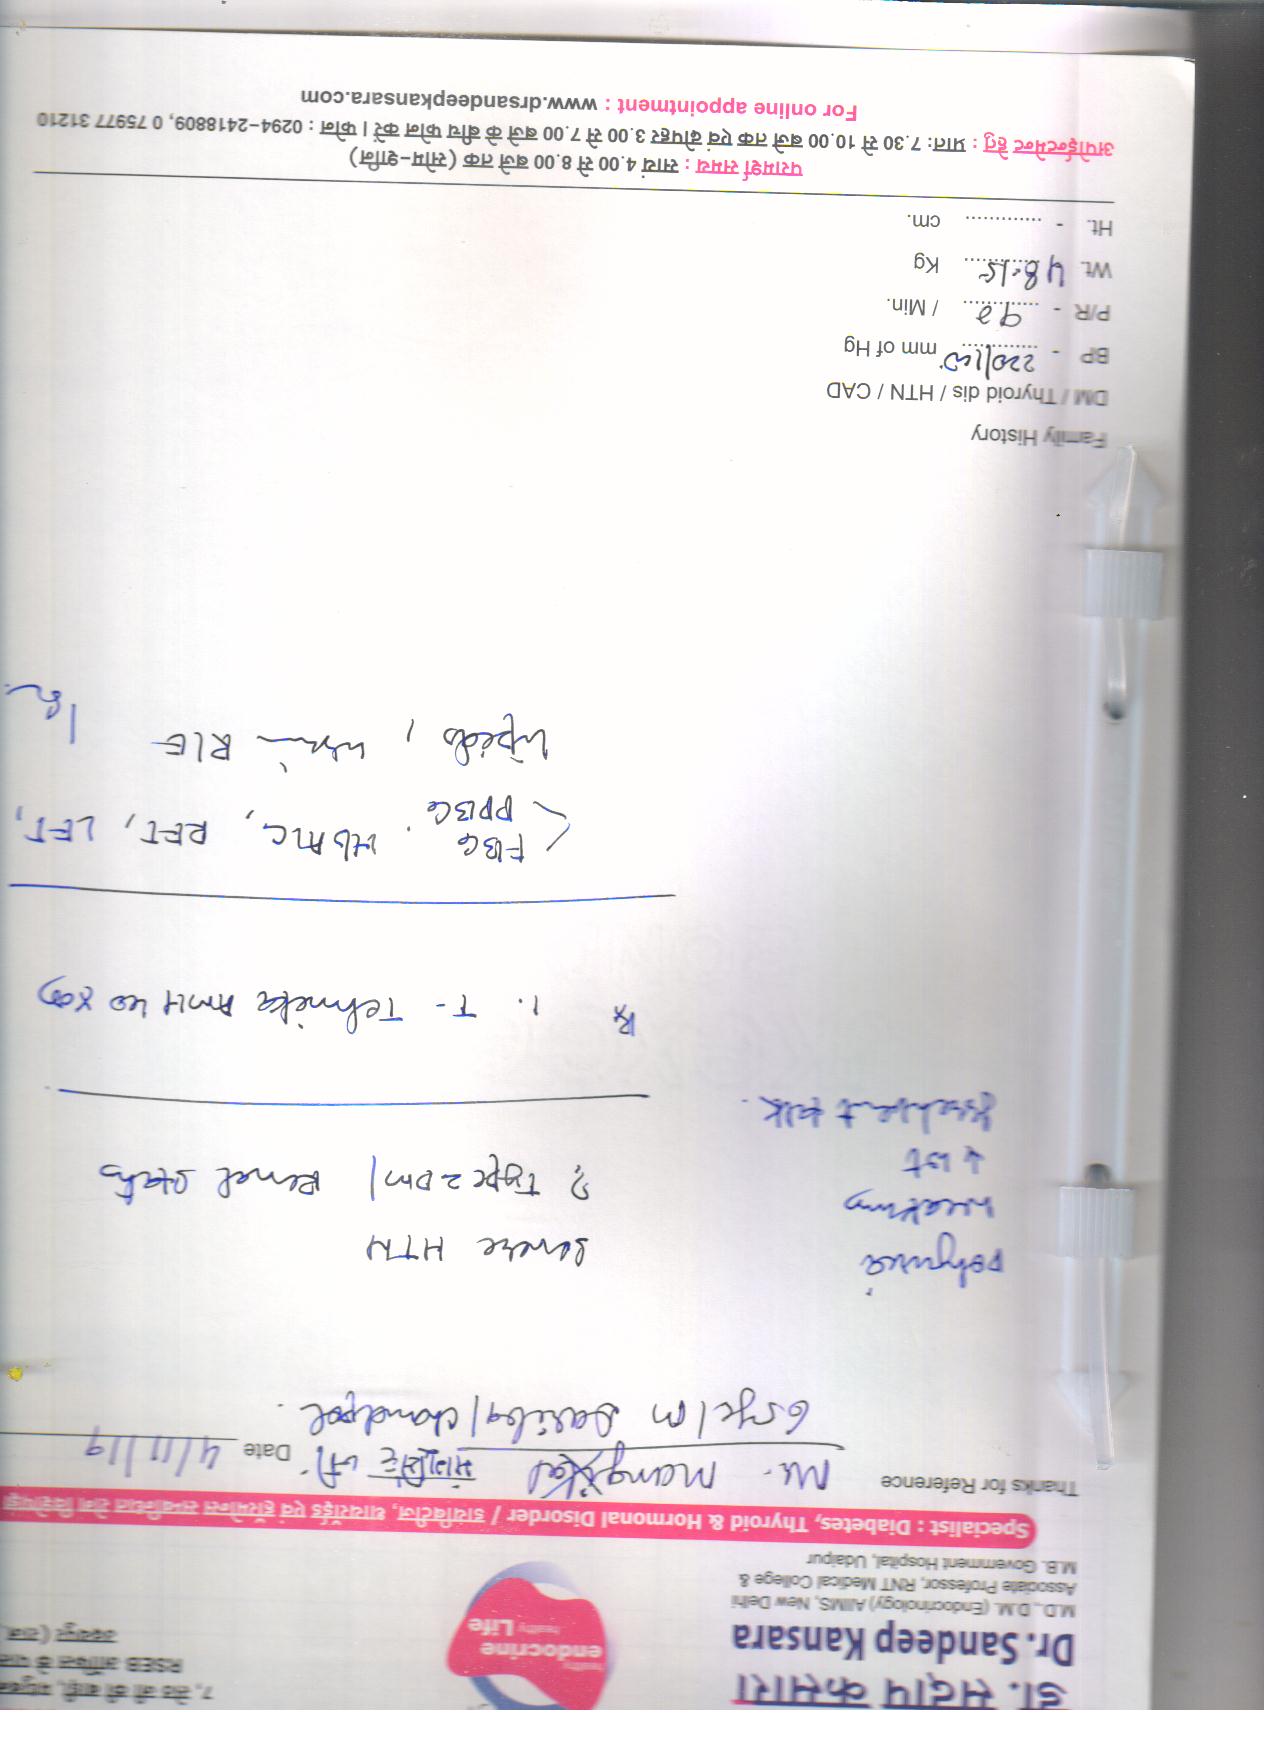 डॉ. संदीप कंसारा
Dr. Sandeep Kansara
M.D., D.M. (Endocrinology) AIIMS, New Delhi
Associate Professor, RNT Medical College &
M.B. Government Hospital, Udaipur
healthy
endocrine
healthy
Life
7,
RSEB ऑफिस के पास
उदयपुर (राज.
Specialist : Diabetes, Thyroid & Hormonal Disorder / डायबिटीज, थायरॉईड एवं हॉर्मोन्स सम्बन्धित रोग विशेषज्ञ
Thanks for Reference Mr. Date 4/11/19
65yr/M
polyuria
weakness
↓ wt
Severe HTN
? Type 2 DM / Renal status
Rx 1. T- AMH 40 x
FBG
PPBG
HbA1c, RFT, LFT,
lipids, urine R/E
Family History
DM / Thyroid dis / HTN / CAD
BP - 220/100 mm of Hg
P/R - 92 / Min.
Wt. 48.15 Kg
Ht. - ............. cm.
परामर्श समय : सायं 4.00 से 8.00 बजे तक (सोम-शनि)
अपॉईन्टमेन्ट हेतु : प्रातः 7.30 से 10.00 बजे तक एवं दोपहर 3.00 से 7.00 बजे के बीच फोन करें। फोन : 0294-2418809, 0 75977 31210
For online appointment : www.drsandeepkansara.com